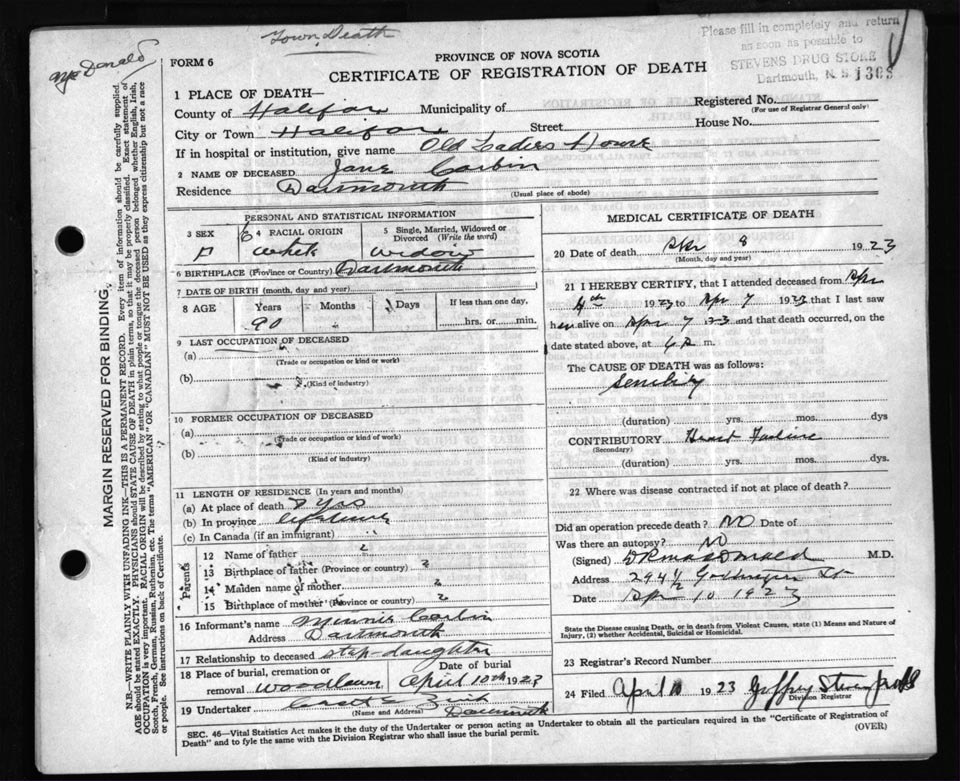 Town Death
Please fill in completely and return
as soon as possible to
STEVENS DRUG STORE
Dartmouth, N. S. 1303
McDonald
FORM 6
PROVINCE OF NOVA SCOTIA
CERTIFICATE OF REGISTRATION OF DEATH
1 PLACE OF DEATH—
County of Halifax Municipality of
Registered No.
(For use of Registrar General only)
City or Town Halifax Street House No.
If in hospital or institution, give name Old Ladies Home
2 NAME OF DECEASED Jane Corbin
Residence Dartmouth
(Usual place of abode)
PERSONAL AND STATISTICAL INFORMATION
3 SEX F
4 RACIAL ORIGIN White
5 Single, Married, Widowed or Divorced (Write the word) Widow
6 BIRTHPLACE (Province or Country) Dartmouth
7 DATE OF BIRTH (month, day and year)
8 AGE Years 90 Months Days If less than one day, hrs. or min.
9 LAST OCCUPATION OF DECEASED
(a)
(Trade or occupation or kind or work)
(b)
(Kind of industry)
10 FORMER OCCUPATION OF DECEASED
(a)
(Trade or occupation or kind of work)
(b)
(Kind of industry)
11 LENGTH OF RESIDENCE (In years and months)
(a) At place of death Yrs
(b) In province lifetime
(c) In Canada (if an immigrant)
Parents
12 Name of father ?
13 Birthplace of father (Province or country) ?
14 Maiden name of mother ?
15 Birthplace of mother (Province or country) ?
16 Informant's name Minnie Corbin
Address Dartmouth
17 Relationship to deceased step-daughter
18 Place of burial, cremation or removal Woodlawn Date of burial April 10th 1923
19 Undertaker Dartmouth
(Name and Address)
MEDICAL CERTIFICATE OF DEATH
20 Date of death Apr 8 1923
(Month, day and year)
21 I HEREBY CERTIFY, that I attended deceased from Apr
4th 1923 to Apr 7 1923 that I last saw
her alive on Apr 7 1923 and that death occurred, on
date stated above, at 6 a m.
The CAUSE OF DEATH was as follows:
Senility
(duration) yrs. mos. dys
CONTRIBUTORY Heart Failure
(Secondary)
(duration) yrs. mos. dys.
22 Where was disease contracted if not at place of death?
Did an operation precede death? No Date of
Was there an autopsy? No
(Signed) MacDonald M.D.
Address 294½ Gottingen St
Date Apr 10 1923
State the Disease causing Death, or in death from Violent Causes, state (1) Means and Nature of
Injury, (2) whether Accidental, Suicidal or Homicidal.
23 Registrar's Record Number
24 Filed April 10 1923 Guffrey Stevens
Division Registrar
SEC. 46—Vital Statistics Act makes it the duty of the Undertaker or person acting as Undertaker to obtain all the particulars required in the "Certificate of Registration of
Death" and to fyle the same with the Division Registrar who shall issue the burial permit.
(OVER)
MARGIN RESERVED FOR BINDING.
N.B.—WRITE PLAINLY WITH UNFADING INK—THIS IS A PERMANENT RECORD. Every item of information should be carefully supplied.
AGE should be stated EXACTLY. PHYSICIANS should STATE CAUSE OF DEATH in plain terms, so that it may be properly classified. Exact statement of
OCCUPATION is very important. RACIAL ORIGIN will be described by stating to what people or tongue the deceased person belonged whether English, Irish,
Scotch, French, German, Russian, Ruthenian, etc. The terms "AMERICAN" OR "CANADIAN" MUST NOT BE USED as they express citizenship but not a race
or people. See instructions on back of Certificate.